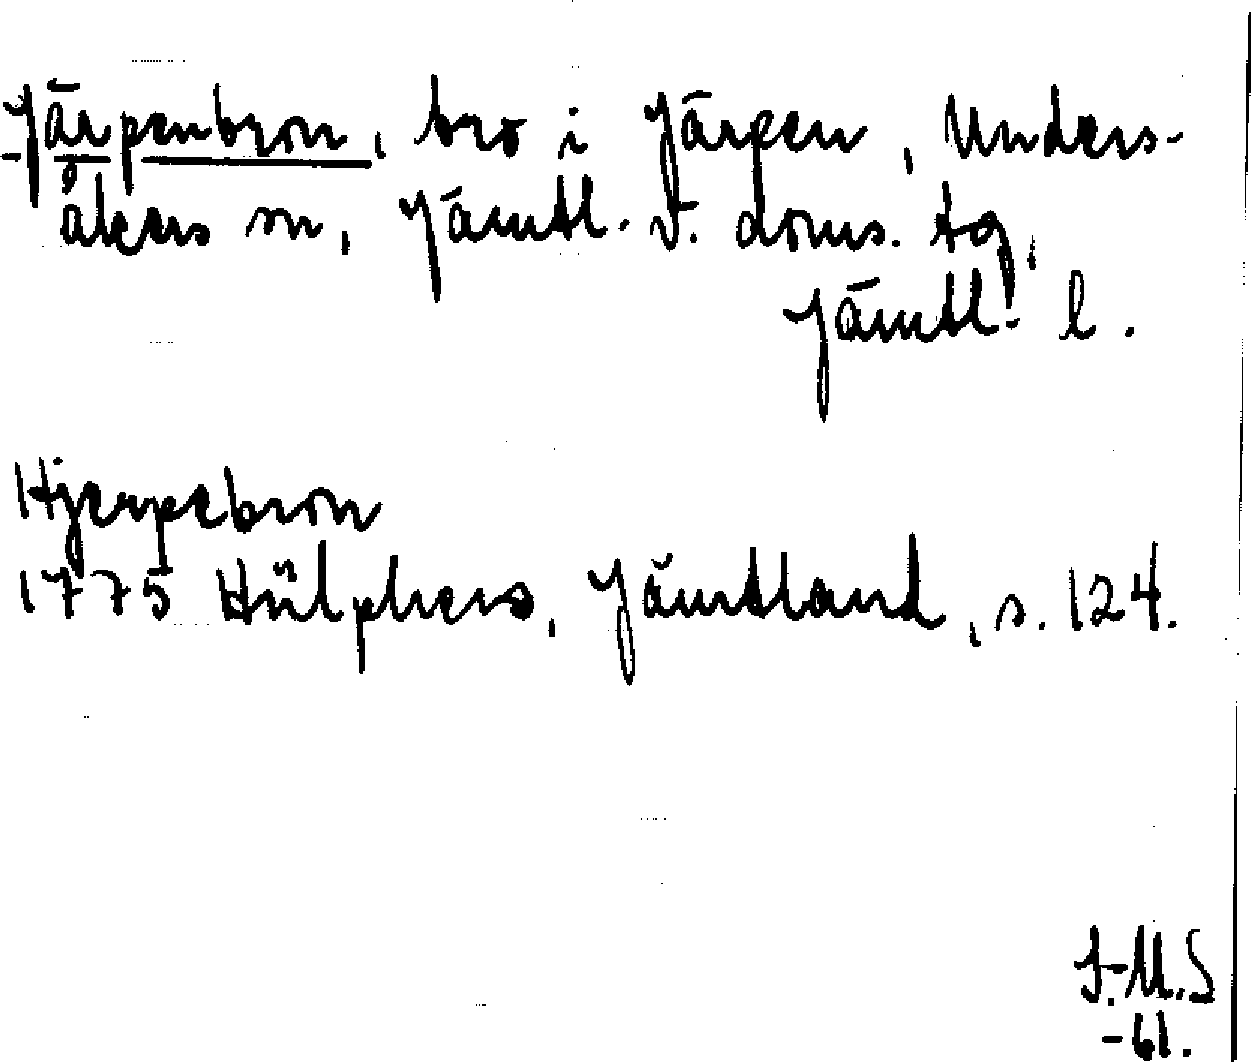 Järpenbron, bro i Järpen, Unders-
åkers sn, Jämtl. v. doms. tg,
Jämtl. l.
Hjerpebron
1775 Hülphers, Jämtland, s. 124.
I.-M.S
-61.